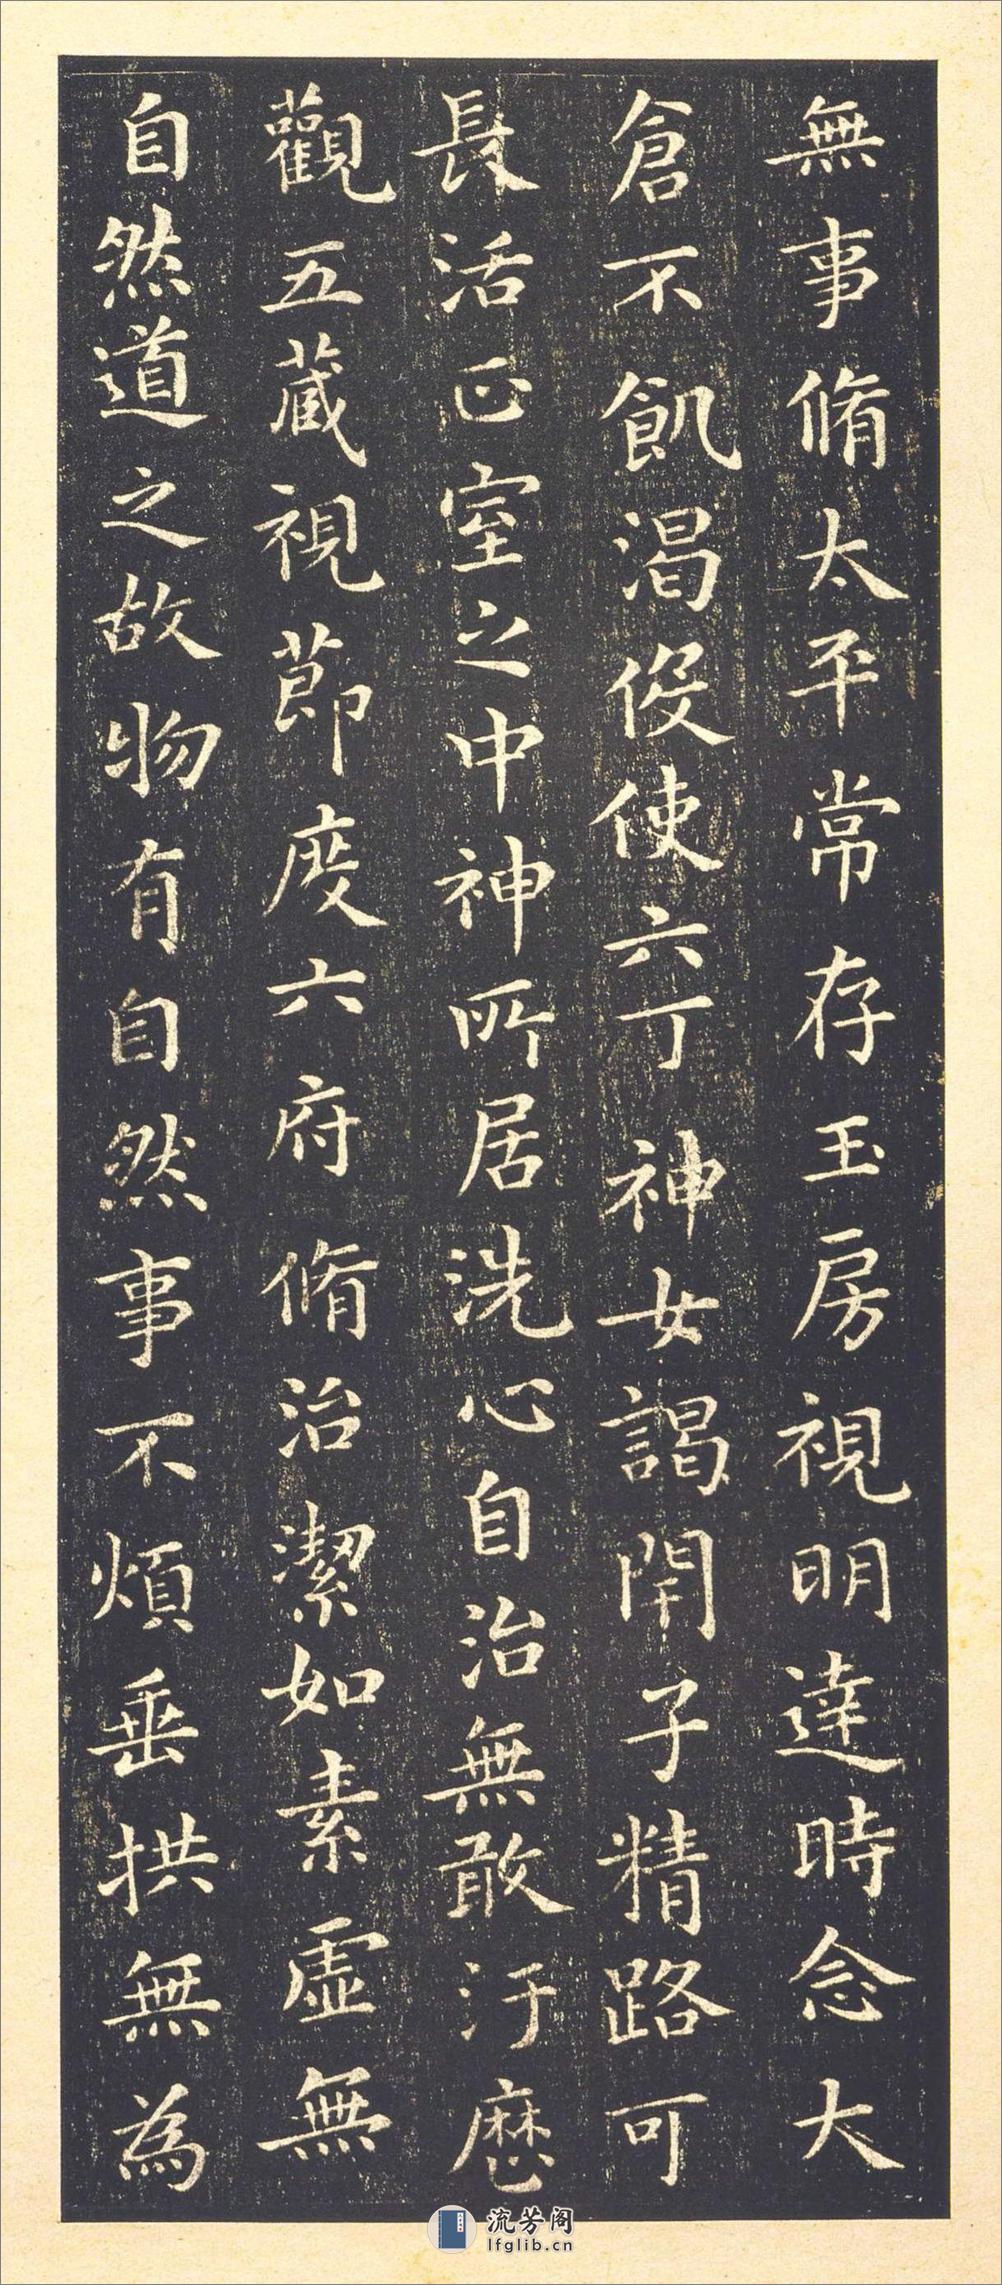 無事脩太平常存玉房視明達時念大
倉不飢渴伇使六丁神女謁閇子精路可
長活正室之中神所居洗心自治無敢汙
觀五藏視節度六府脩治潔如素虛無
自然道之故物有自然事不煩垂拱無為
流芳阁
lfglib.cn